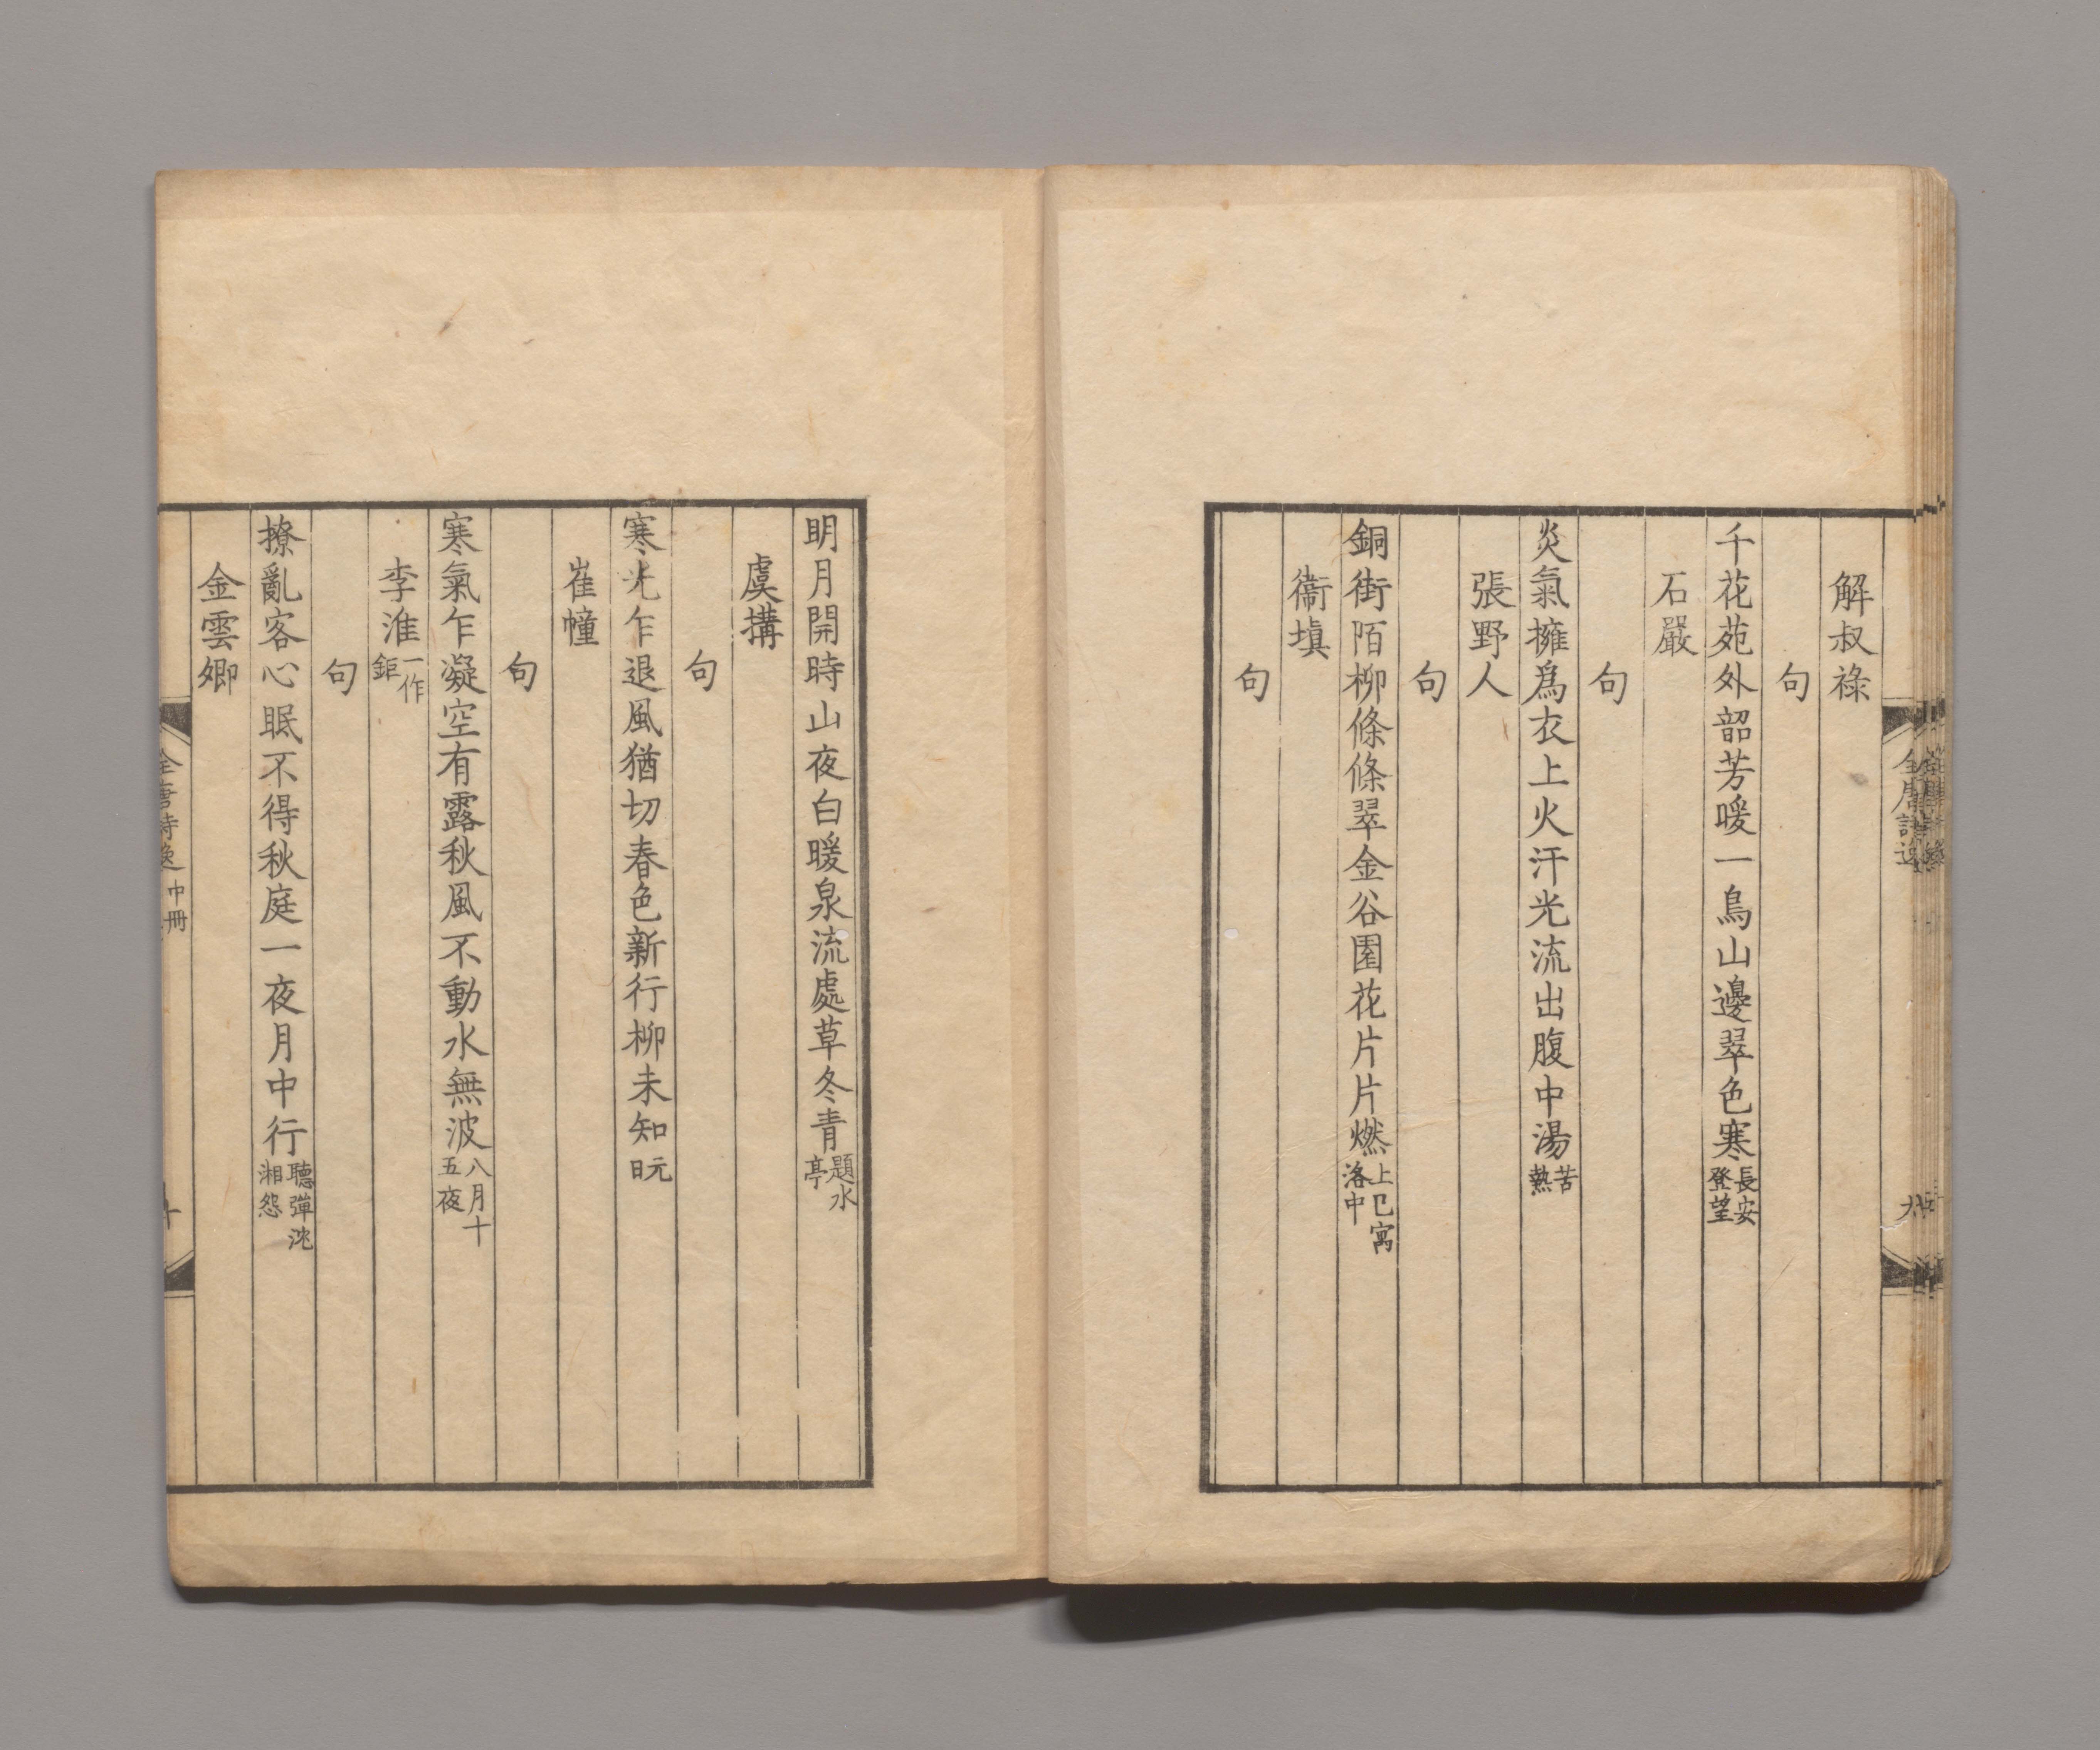 解叔祿
句
千花苑外韶芳暖一鳥山邊翠色寒長安登望
石巖
句
炎氣擁爲衣上火汗光流出腹中湯苦熱
張野人
句
銅街陌柳條條翠金谷園花片片燃上巳寓洛中
衞塡
句
明月開時山夜白暖泉流處草冬青題水亭
虞搆
句
寒光乍退風猶切春色新行柳未知元日
崔幢
句
寒氣乍凝空有露秋風不動水無波八月十五夜
李淮一作鉅
句
撩亂客心眠不得秋庭一夜月中行聽彈沈湘怨
金雲卿
全唐詩逸 中冊
十